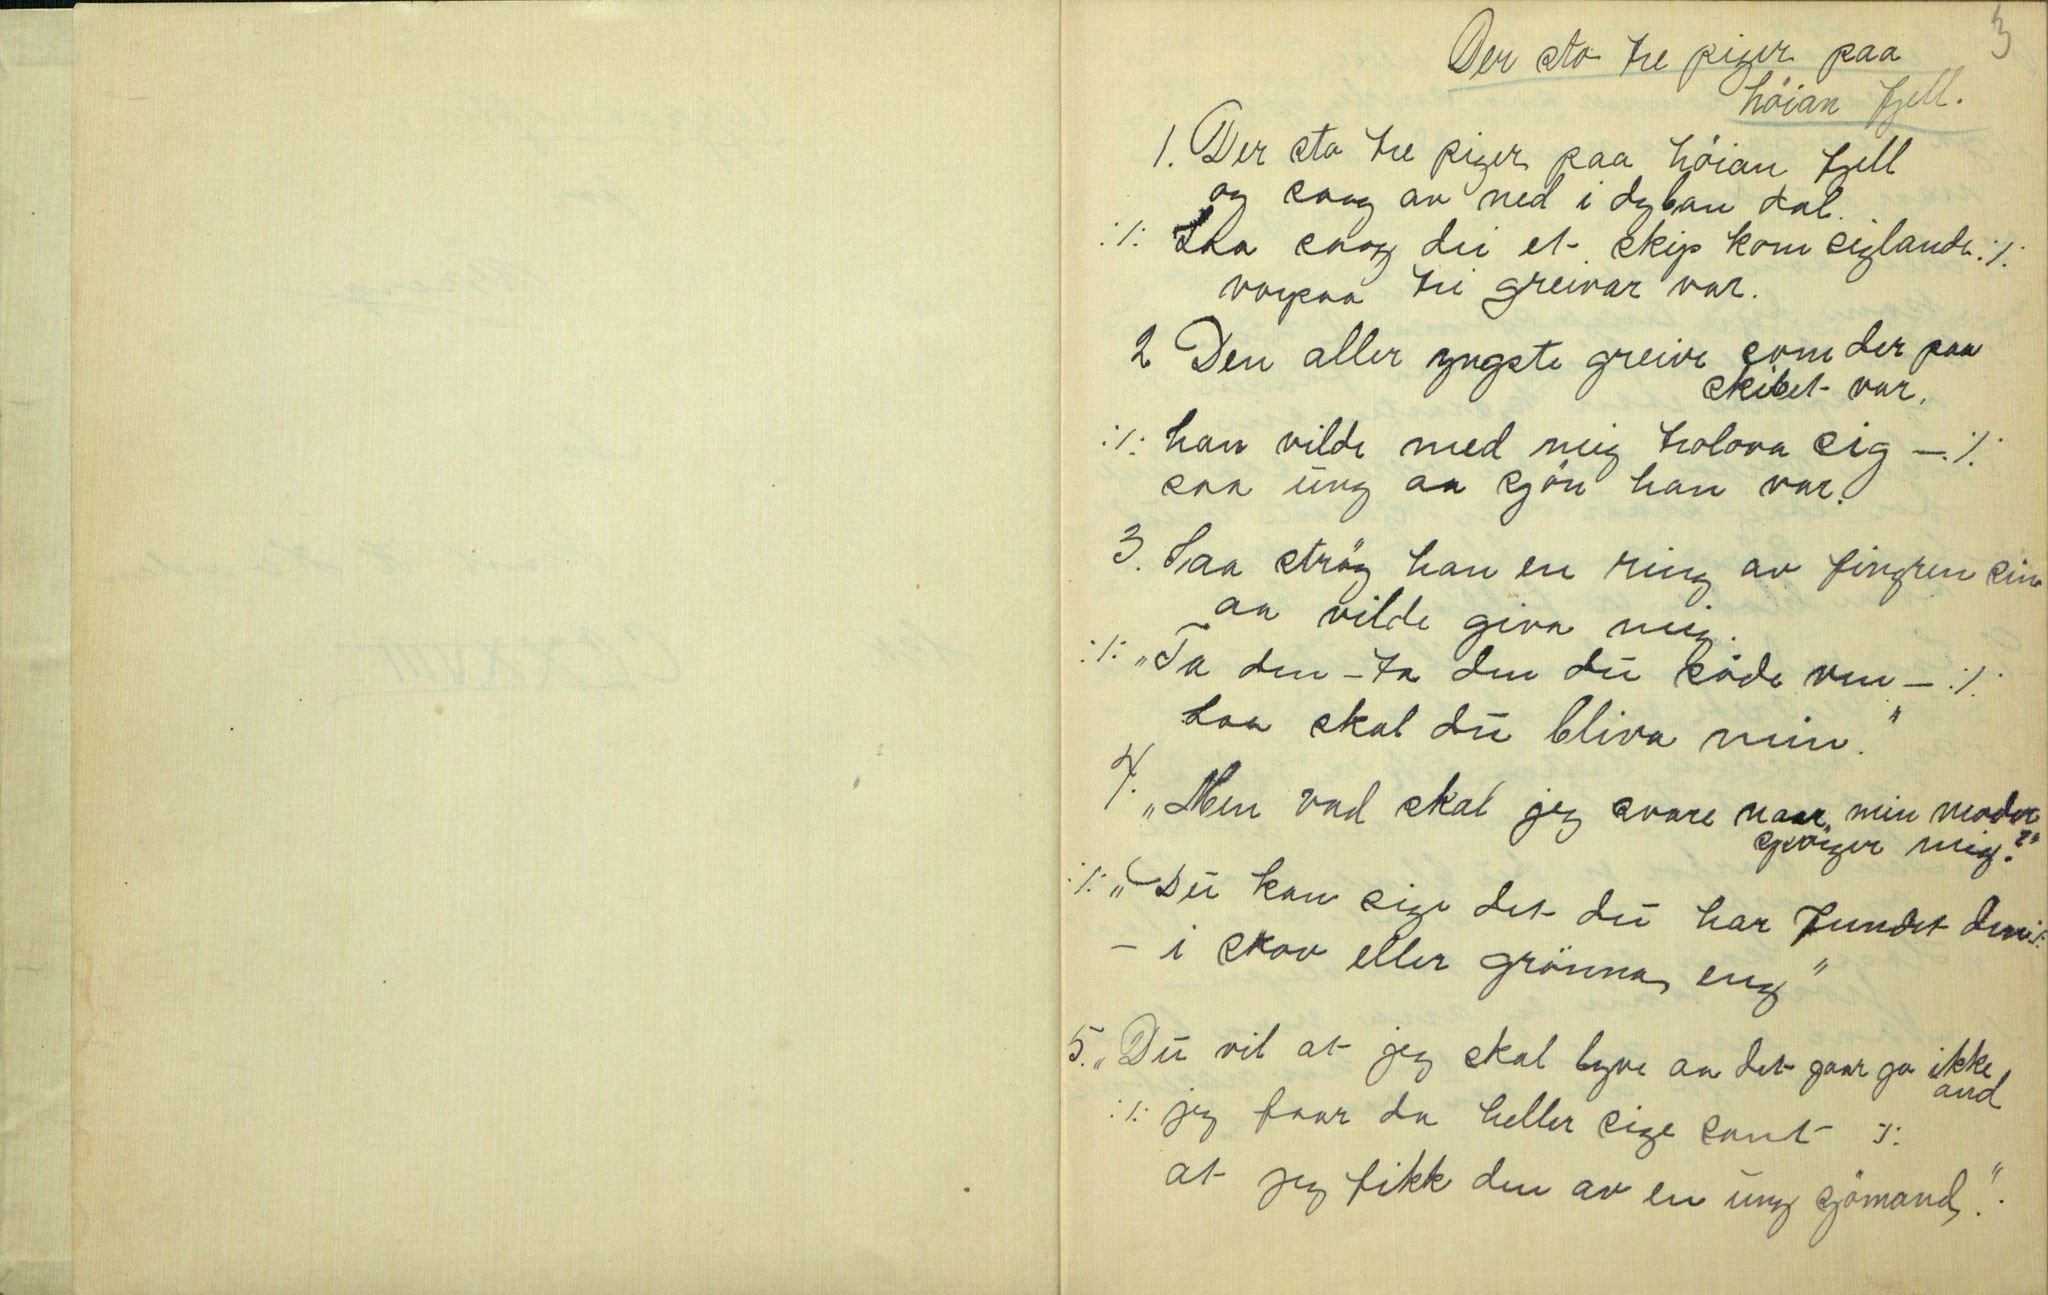 3
Der sto tre piger paa
höian fjell.
1. Der sto tre piger paa höian fjell
og saag av ned i dyban dal.
:/: Daa saag dei et skip kom siglande :/:
vorpaa tri greivar var.
2 Den aller yngste greive som der paa
skibet var.
:/: han vilde med meig trolova sig – :/:
saa ung aa sjön han var.
3. Saa strög han en ring av fingren sin
aa vilde giva meig.
:/: „Ta den – ta den du söde ven – :/:
daa skal du bliva min."
4. „Men vad skal jeg svare naar min moder
spörger mig?"
:/: „Du kan sige det du har fundet den :/:
– i skov eller grönna eng"
5. „Du vil at jeg skal lyve aa det gaar ja ikke
and
:/: jeg faar da heller sige sant :/:
at jeg fikk den av en ung sjömand".